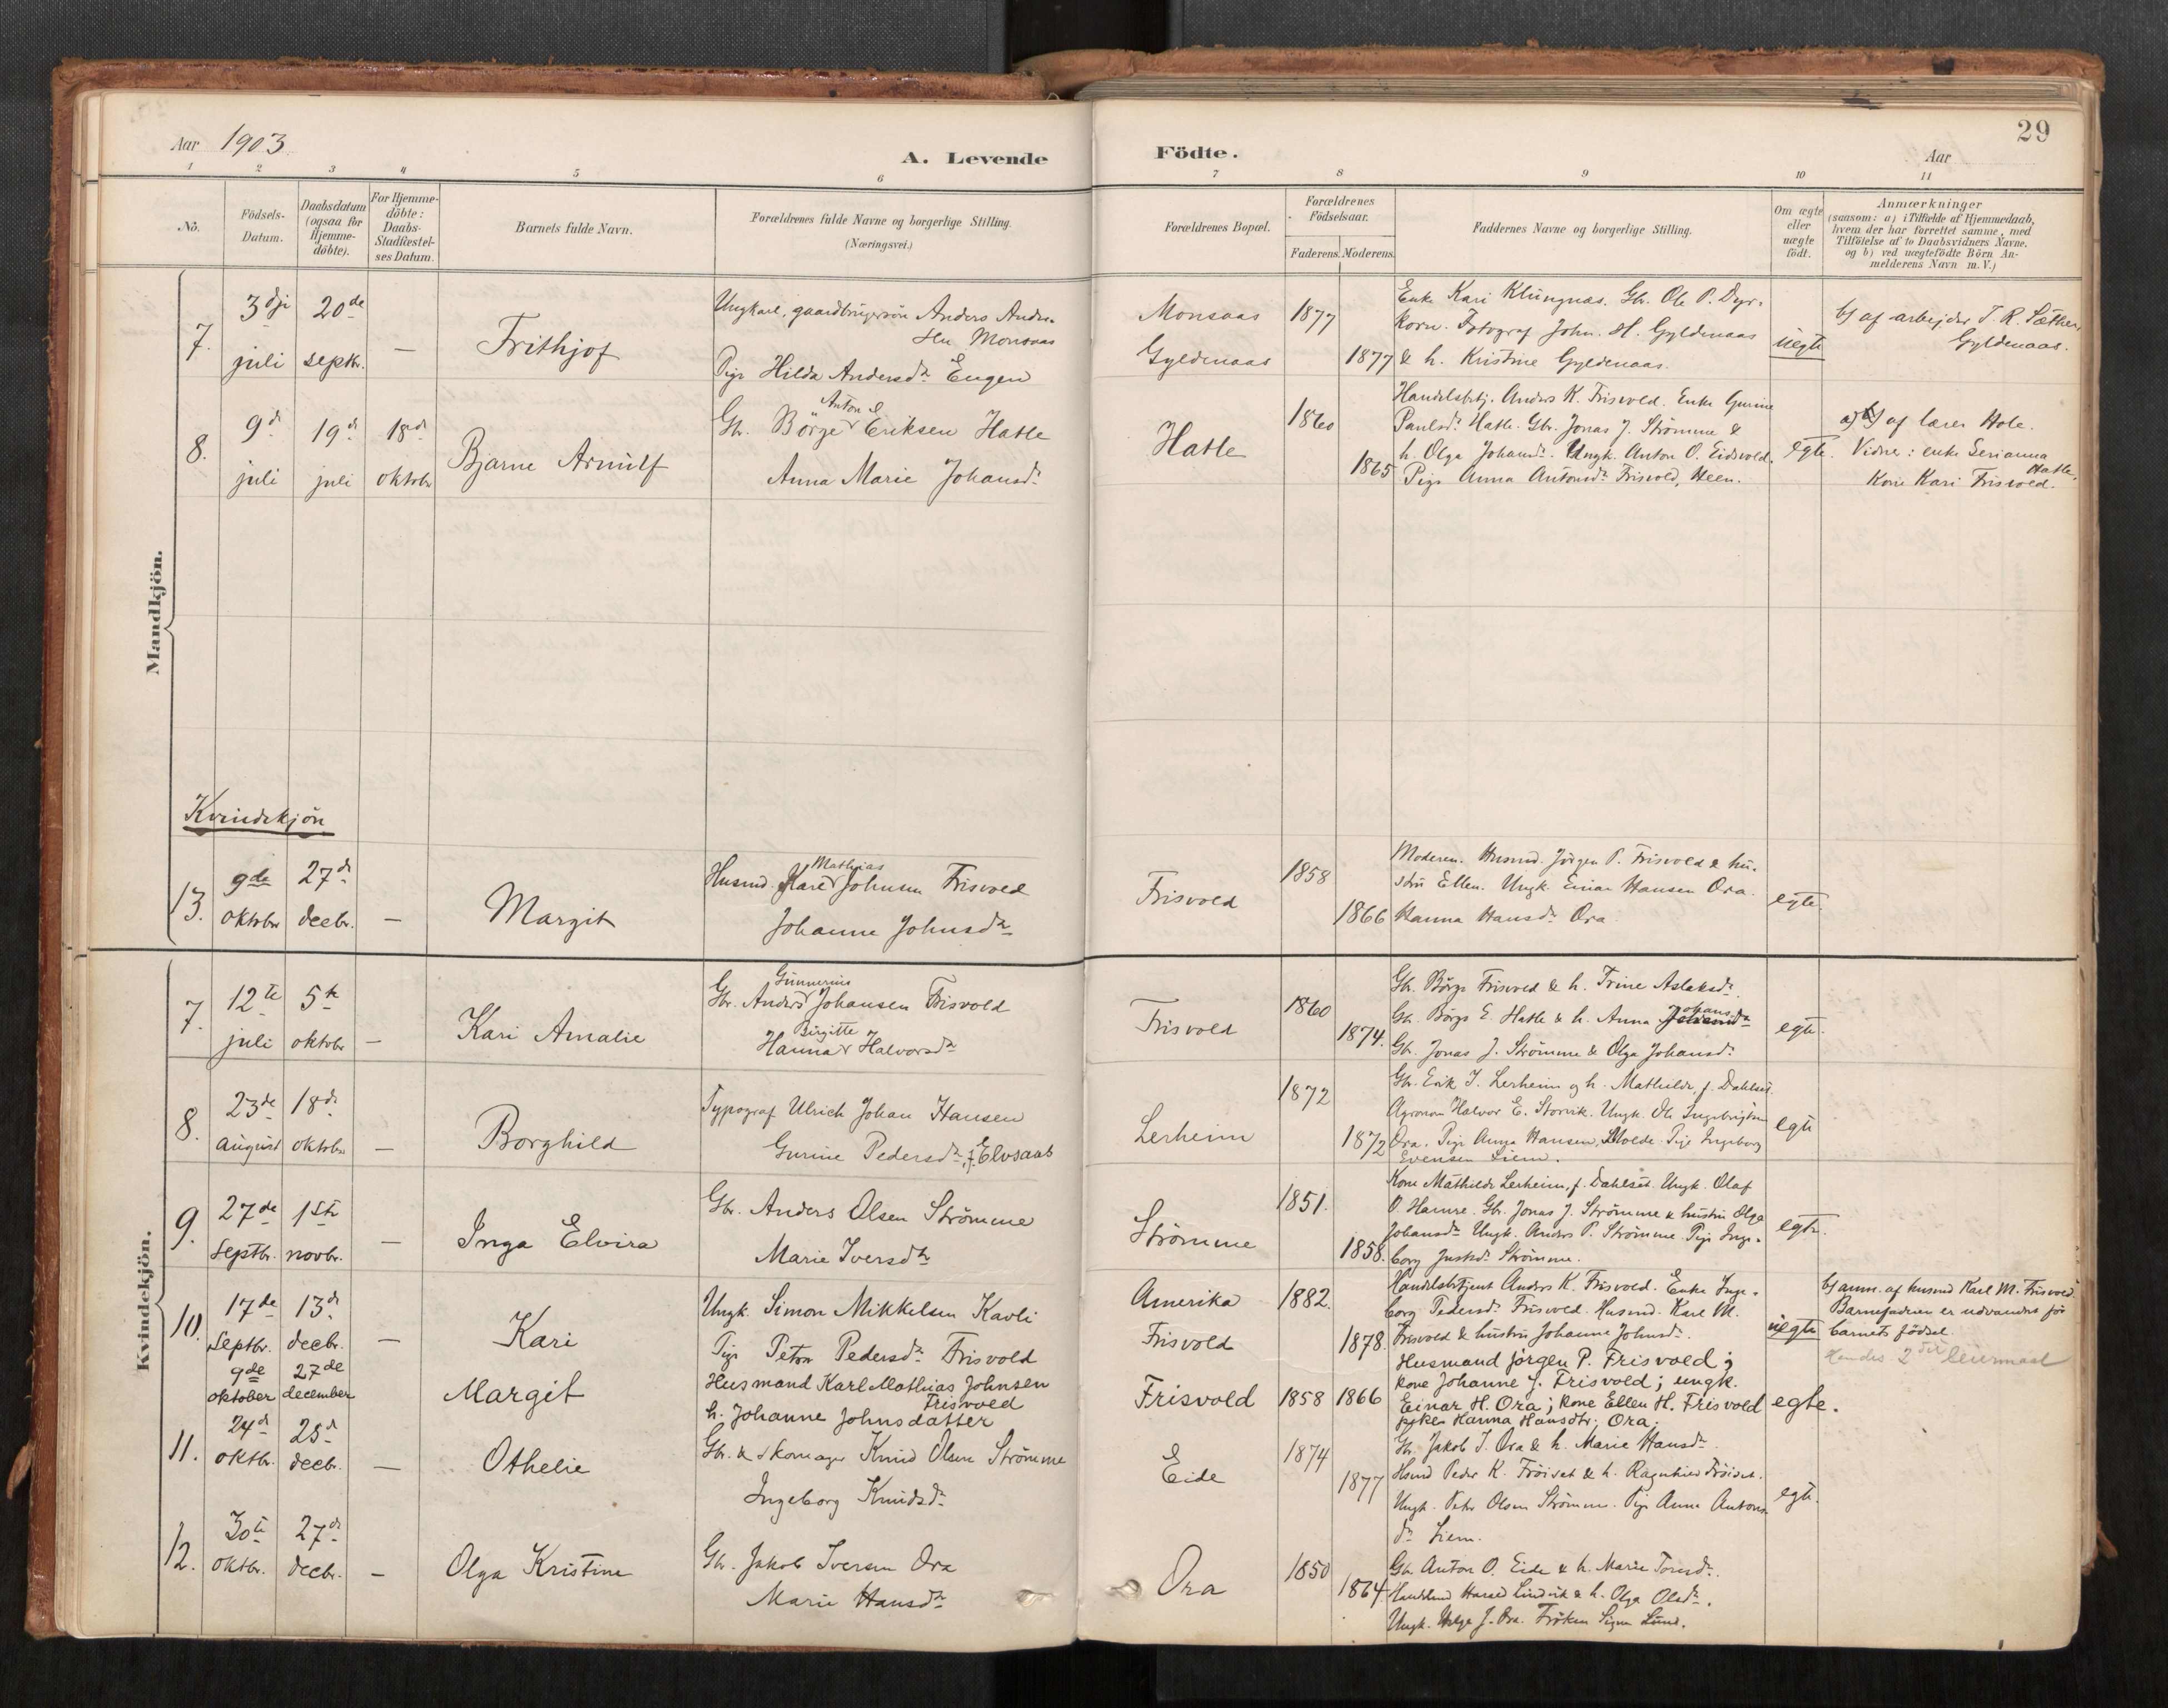 Aar 1903.
A. Levende Födte.
Aar
29
1 2 3 4 5 6 7 8 9 10 11
No.
Födsels-Datum.
Daabsdatum (ogsaa for Hjemme-döbte).
For Hjemme-döbte: Daabs-Stadfæstel-ses Datum.
Barnets fulde Navn.
Forældrenes fulde Navne og borgerlige Stilling.
(Næringsvei.)
Forældrenes Bopæl.
Forældrenes Födselsaar.
Faderens. Moderens.
Faddernes Navne og borgerlige Stilling.
Om ægte eller uægte födt.
Anmærkninger
(saasom: a) i Tilfælde af Hjemmedaab,
hvem der har forrettet samme, med
Tilföielse af to Daabsvidners Navne,
og b) ved uægtefödte Börn An-
melderens Navn m. V.)
Mandkjön.
7. 3dje juli 20de septbr. — Frithjof
Ungkarl, gaardbrugersön Anders Anders-
sen Monsaas
Pige Hilda Andersdr Engen
Monsaas 1877
Gyldenaas 1877
Enke Kari Klungnas. Gbr. Ole P. Dyr-
korn. Fotograf John. H. Gyldenaas
& h. Kristine Gyldenaas.
uegte
b) af arbejder T. R. Sæther,
Gyldenaas.
8. 9d juli 19d juli 18d oktobr Bjarne Arnulf
Gbr. Börge Anton Eriksen Hatle
Anna Marie Johansdr
Hatle 1860 1865
Handelsbetj. Anders K. Frisvold. Enke Gurine
Paulsdr Hatle. Gbr. Jonas J. Strömme &
h. Olga Johansdr. Ungk. Anton O. Eidsvold.
Pige Anna Antonsdr Frisvold, Heen.
egte.
a) b) af lærer Hole.
Vidner: enke Serianna
Hatle,
Kone Kari Frisvold.
Kvindekjön
13. 9de oktobr 27d decbr. — Margit
Husmd. Karl Mathias Johnsen Frisvold
Johanne Johnsdr
Frisvold 1858 1866
Moderen. Husmd. Jörgen P. Frisvold & hu-
stru Ellen. Ungk. Einar Hansen Ora.
Hanna Hansdr Ora.
egte.
Kvindekjön.
7. 12te juli 5te oktobr — Kari Amalie
Gbr. Anders Gunnerius Johansen Frisvold
Hanna Birgitte Halvorsdr
Frisvold 1860 1874.
Gbr. Börge Frisvold & h. Trine Aslaksdr.
Gbr. Börge E. Hatle & h. Anna Johansdr
Gbr. Jonas J. Strömme & Olga Johansdr.
egte.
8. 23de august 18de oktobr — Borghild
Typograf Ulrich Johan Hansen
Gurine Pedersdr, f. Elvsaas
Lerheim 1872 1872
Gbr. Erik I. Lerheim og h. Mathilde, f. Dahlset.
Agronom Halvor E. Storvik. Ungk. Ole Ingebrigtsen
Ora. Pige Anna Hansen, Molde. Pige Ingeborg
Evensen Liem.
egte
9. 27de Septbr. 1ste novbr. — Inga Elvira
Gbr. Anders Olsen Strömme
Marie Iversdr
Strömme 1851. 1858.
Kone Mathilde Lerheim, f. Dahlset. Ungk. Olaf
O. Hamre. Gbr. Jonas J. Strömme & hustru Olga
Johansdr. Ungk. Anders P. Strömme. Pige Inge-
borg Justsdr Strömme.
egte.
10. 17de Septbr. 13d decbr. — Kari
Ungk. Simon Mikkelsen Kavli
Pige Petra Pedersdr Frisvold
Amerika 1882.
Frisvold 1878.
Handelsbetjent Anders K. Frisvold. Enke Inge-
borg Pedersdr Frisvold. Husmd. Karl M.
Frisvold & hustru Johanne Johnsdr.
uegte
b) anm. af husmd Karl M. Frisvold
Barnefaderen er udvandret för
barnets födsel.
Hendes 2det leiermaal
9de oktober 27de december Margit
Husmand Karl Mathias Johnsen
Frisvold
h. Johanne Johnsdatter
Frisvold 1858 1866
Husmand Jörgen P. Frisvold;
kone Johanne J. Frisvold; ungk.
Einar H. Ora; kone Ellen H. Frisvold
pike Hanna Hansdtr. Ora.
egte.
11. 24d oktbr. 25d decbr. — Othelie
Gbr. & skomager Knud Olsen Strömme
Ingeborg Knudsdr.
Eide 1874 1877
Gbr. Jakob I. Ora & h. Marie Hansdr.
Husmd Peder K. Fröiset & h. Ragnhild Fröiset.
Ungk. Peter Olsen Strömme. Pige Anna Antons-
dr Liem.
egte.
12. 30te oktbr. 27d decbr. — Olga Kristine
Gbr. Jakob Iversen Ora
Marie Hansdr
Ora 1850 1864.
Gbr. Anton O. Eide & h. Marie
h. Olga Olsdr.
Ungk. Helge J. Ora. Fröken Signe Lund.